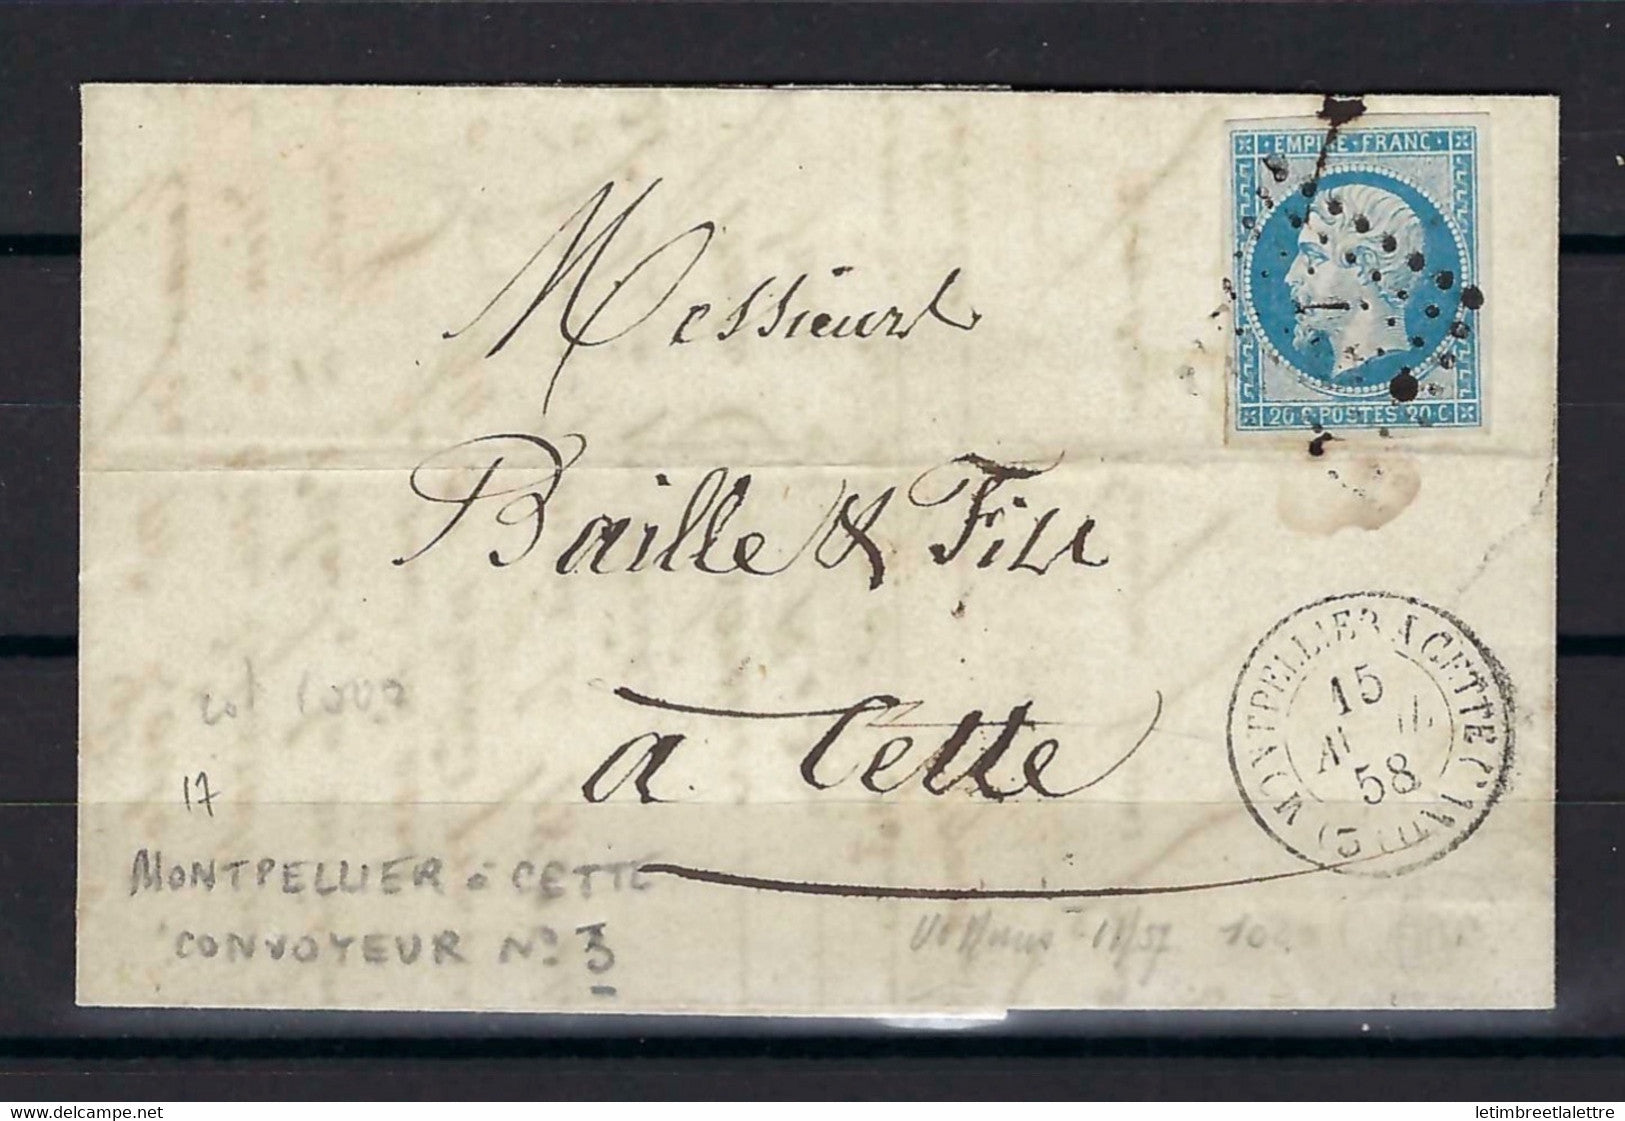 EMPIRE · FRANC ·
20 C · POSTES · 20 C
Messieurs
Baille & Fils
a Cette
MONTPELLIER A CETTE
15
58
17
MONTPELLIER à CETTE
CONVOYEUR No 3
delcampe.net
letimbreetlalettre